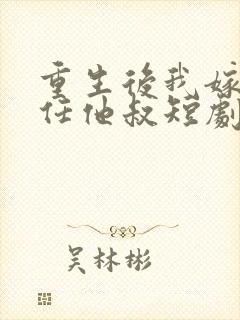 重生後我嫁
任他叔短劇
吴林彬